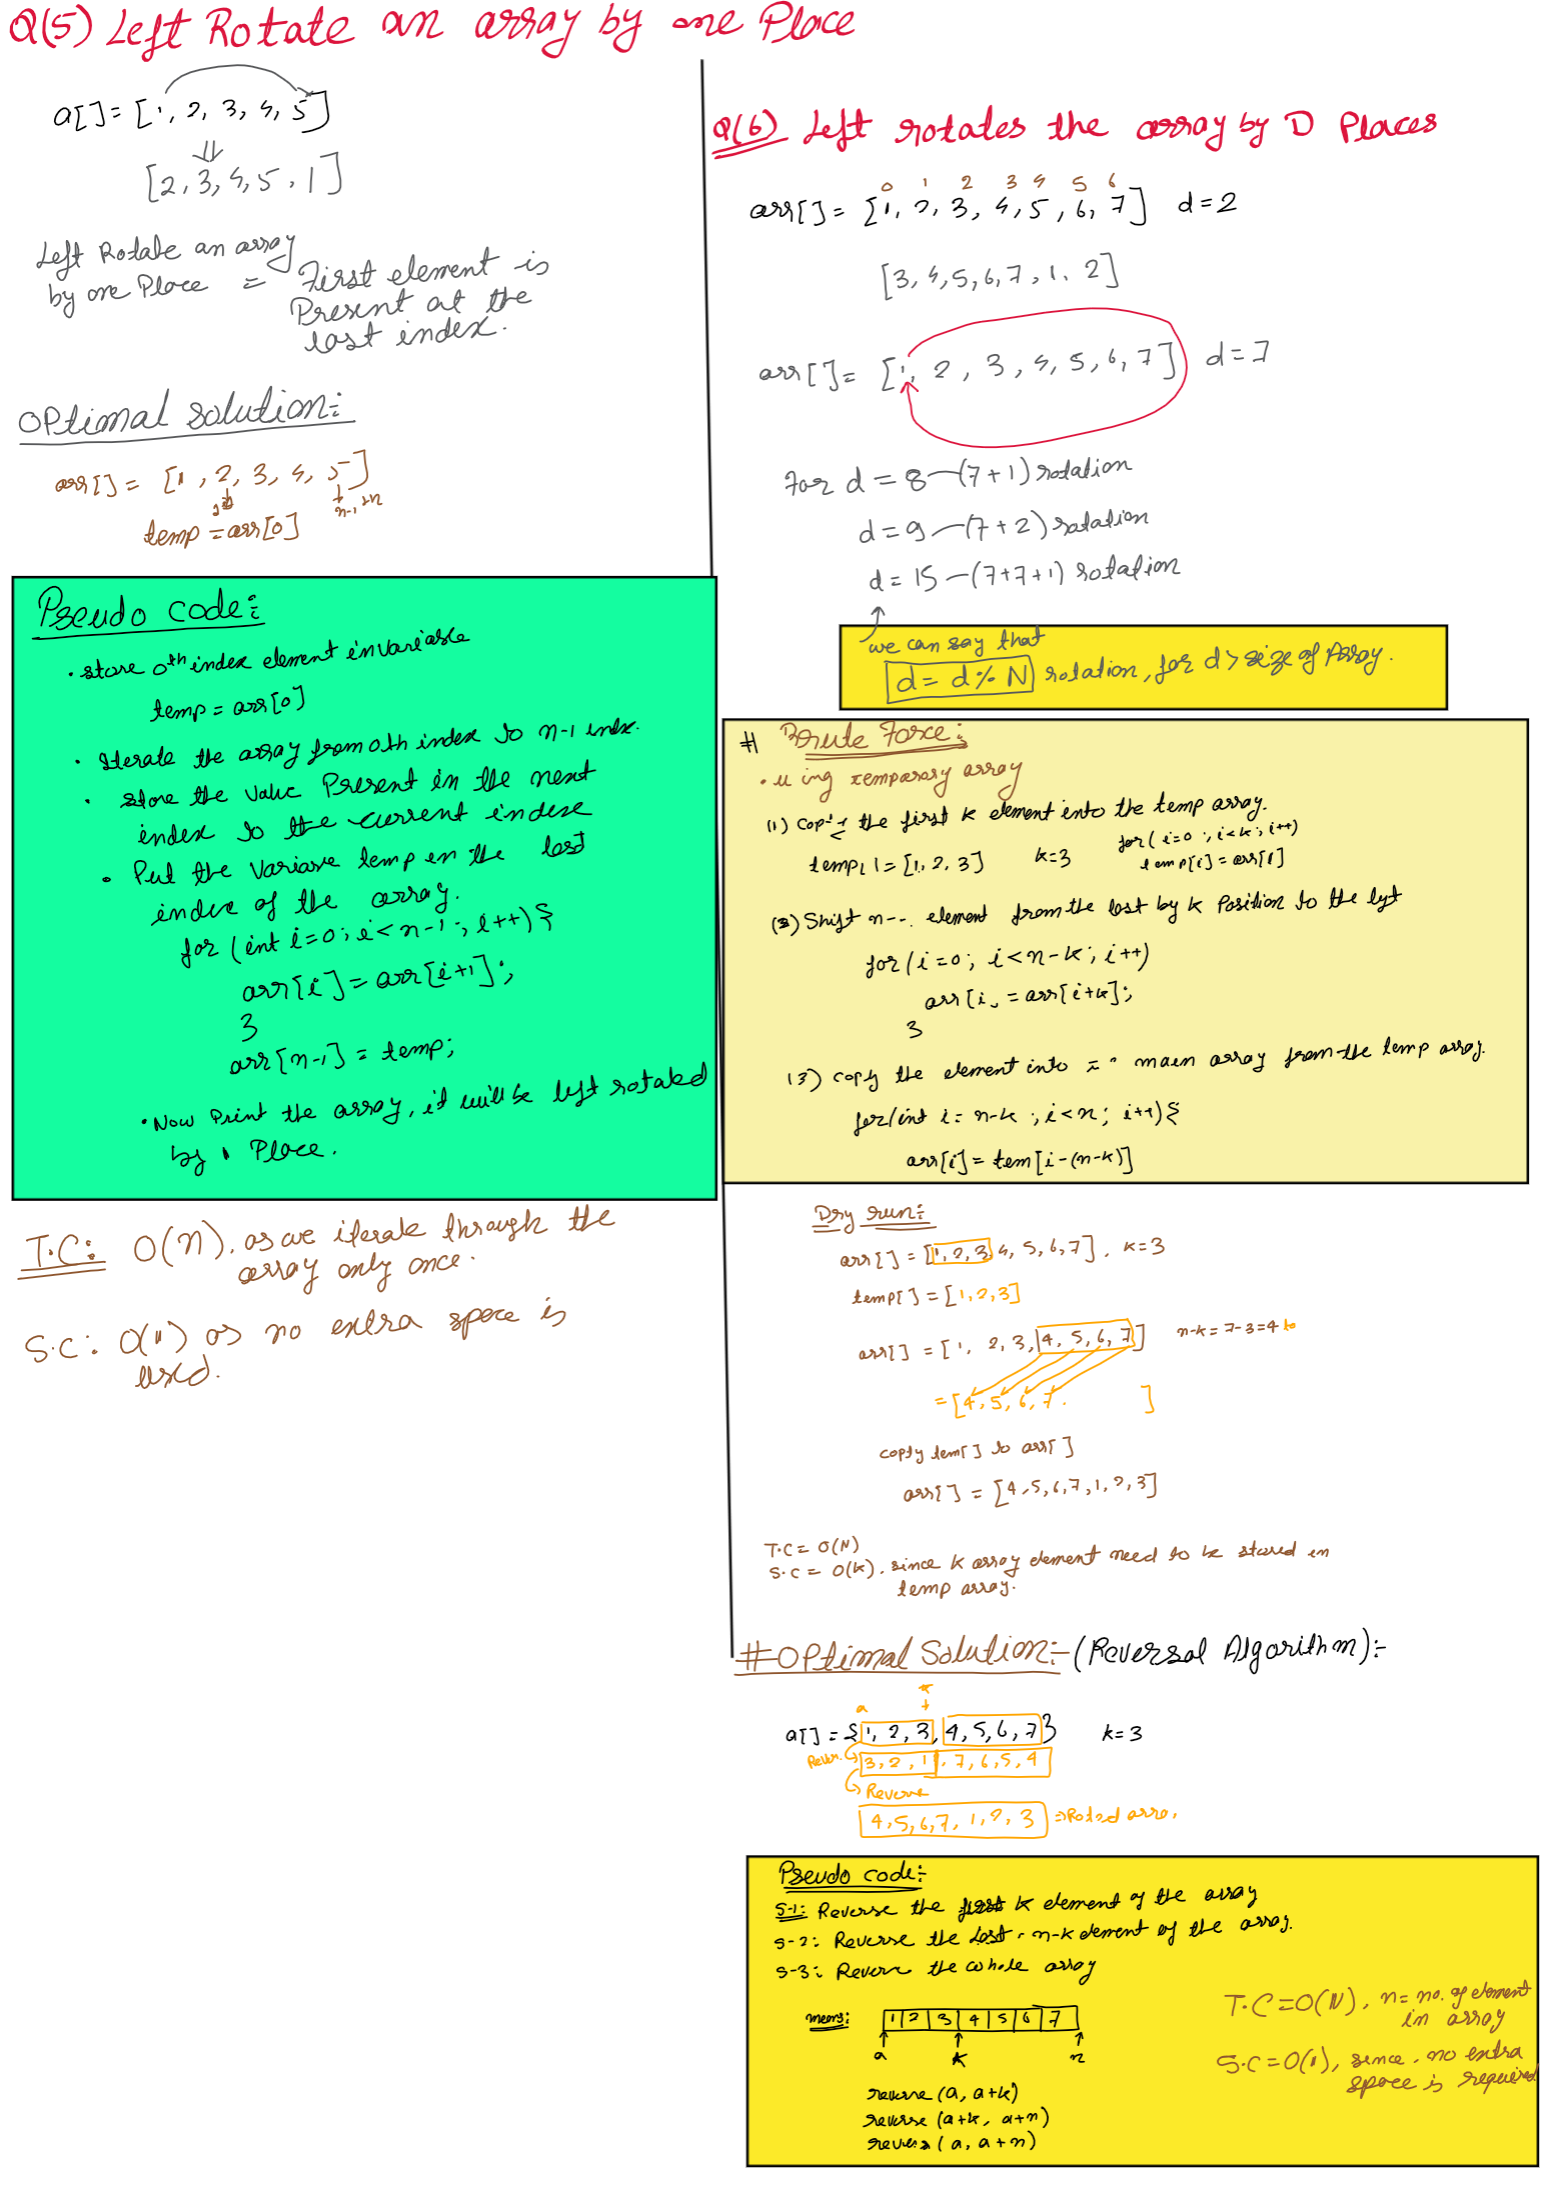 Q(5) Left Rotate an array by one Place
a[] = [1, 2, 3, 4, 5]
⇓
[2, 3, 4, 5, 1]
Left Rotate an array
by one Place = First element is
Present at the
last index.
OPtimal solution:-
arr[] = [1, 2, 3, 4, 5]
n-1
temp = arr[0]
Pseudo code:-
• store 0th index element in variable
temp = arr[0]
• Iterate the array from 0th index to n-1 index.
• store the value Present in the next
index to the current index
• Put the variable temp in the last
index of the array.
for (int i=0; i<n-1; i++) {
arr[i] = arr[i+1];
}
arr[n-1] = temp;
• Now Print the array, it will be left rotated
by 1 Place.
T.C: O(n), as we iterate through the
array only once.
S.C: O(1) as no extra space is
used.
Q(6) Left rotates the array by D Places
0 1 2 3 4 5 6
arr[] = [1, 2, 3, 4, 5, 6, 7] d=2
[3, 4, 5, 6, 7, 1, 2]
arr[] = [1, 2, 3, 4, 5, 6, 7] d=7
For d = 8 — (7+1) rotation
d = 9 — (7+2) rotation
d = 15 — (7+7+1) rotation
we can say that
d = d % N rotation, for d > size of Array.
# Brute Force:-
• u ing temparary array
(1) Copy the first k element into the temp array.
temp[] = [1, 2, 3] k=3 for( i=0 ; i<k ; i++)
temp[i] = arr[i]
(2) Shift n-- element from the last by k Position to the left
for (i=0; i<n-k; i++)
arr[i] = arr[i+k];
}
(3) copty the element into main array from the temp array.
for(int i= n-k ; i<n; i++) {
arr[i] = tem[i-(n-k)]
Dry run:-
arr[] = [1, 2, 3, 4, 5, 6, 7], k=3
temp[] = [1, 2, 3]
arr[] = [1, 2, 3, 4, 5, 6, 7] n-k = 7-3 = 4 to
= [4, 5, 6, 7. ]
copty tem[] to arr[]
arr[] = [4, 5, 6, 7, 1, 2, 3]
T.C = O(N)
S.C = O(k), since k array element need to be stored in
temp array.
# OPtimal Solution:- (Reversal Algorithm):-
a k
a[] = {1, 2, 3, 4, 5, 6, 7} k=3
Rever. 3, 2, 1, 7, 6, 5, 4
Reverse
4, 5, 6, 7, 1, 2, 3 ⇒ Roted arra.
Pseudo code:-
S-1: Reverse the first k element of the array
S-2: Reverse the Last n-k element of the array.
S-3: Reverse the whole array
means: 1 2 3 4 5 6 7
a k n
reverse (a, a+k)
reverse (a+k, a+n)
revers (a, a+n)
T.C = O(N), n = no. of element
in array
S.C = O(1), since no extra
space is required